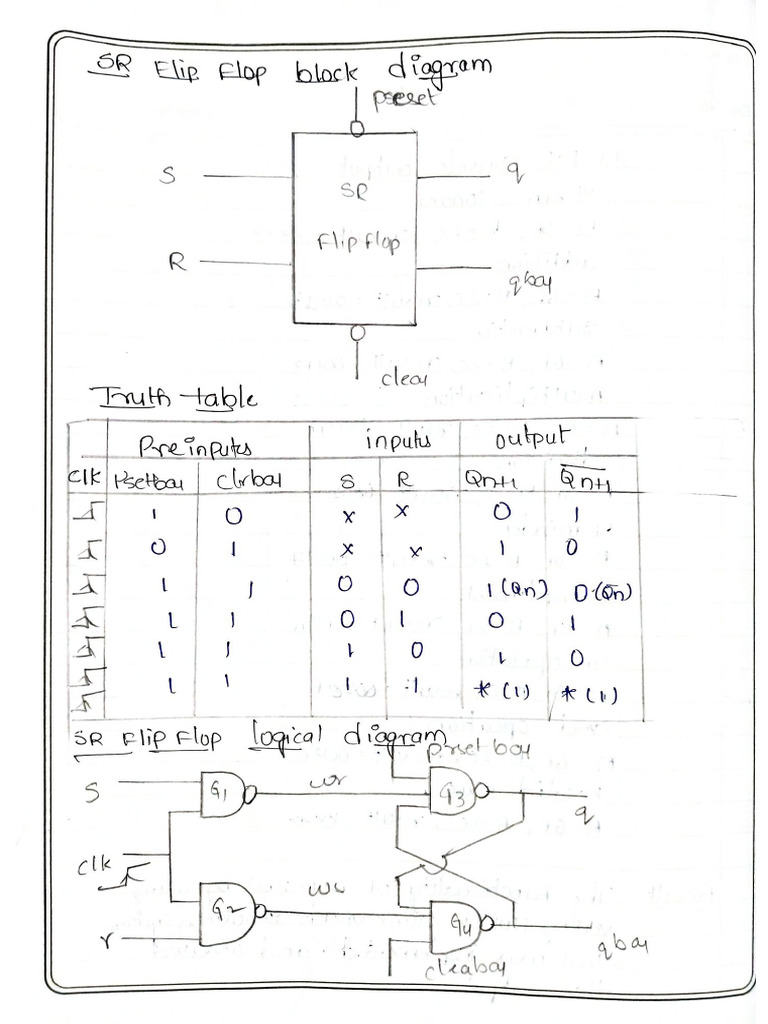 SR Flip Flop block diagram
preset
S
q
SR
Flip flop
R
qbar
clear
Truth table
Preinputs inputs output
Clk Psetbar Clrbar S R Qn+1 Q̅n+1
1 0 x x 0 1
0 1 x x 1 0
1 1 0 0 1 (Qn) 0 (Q̅n)
1 1 0 1 0 1
1 1 1 0 1 0
1 1 1 1 * (1) * (1)
SR Flip Flop logical diagram
prset bar
S G1 G3
q
clk
G2 G4
r
qbar
clearbar